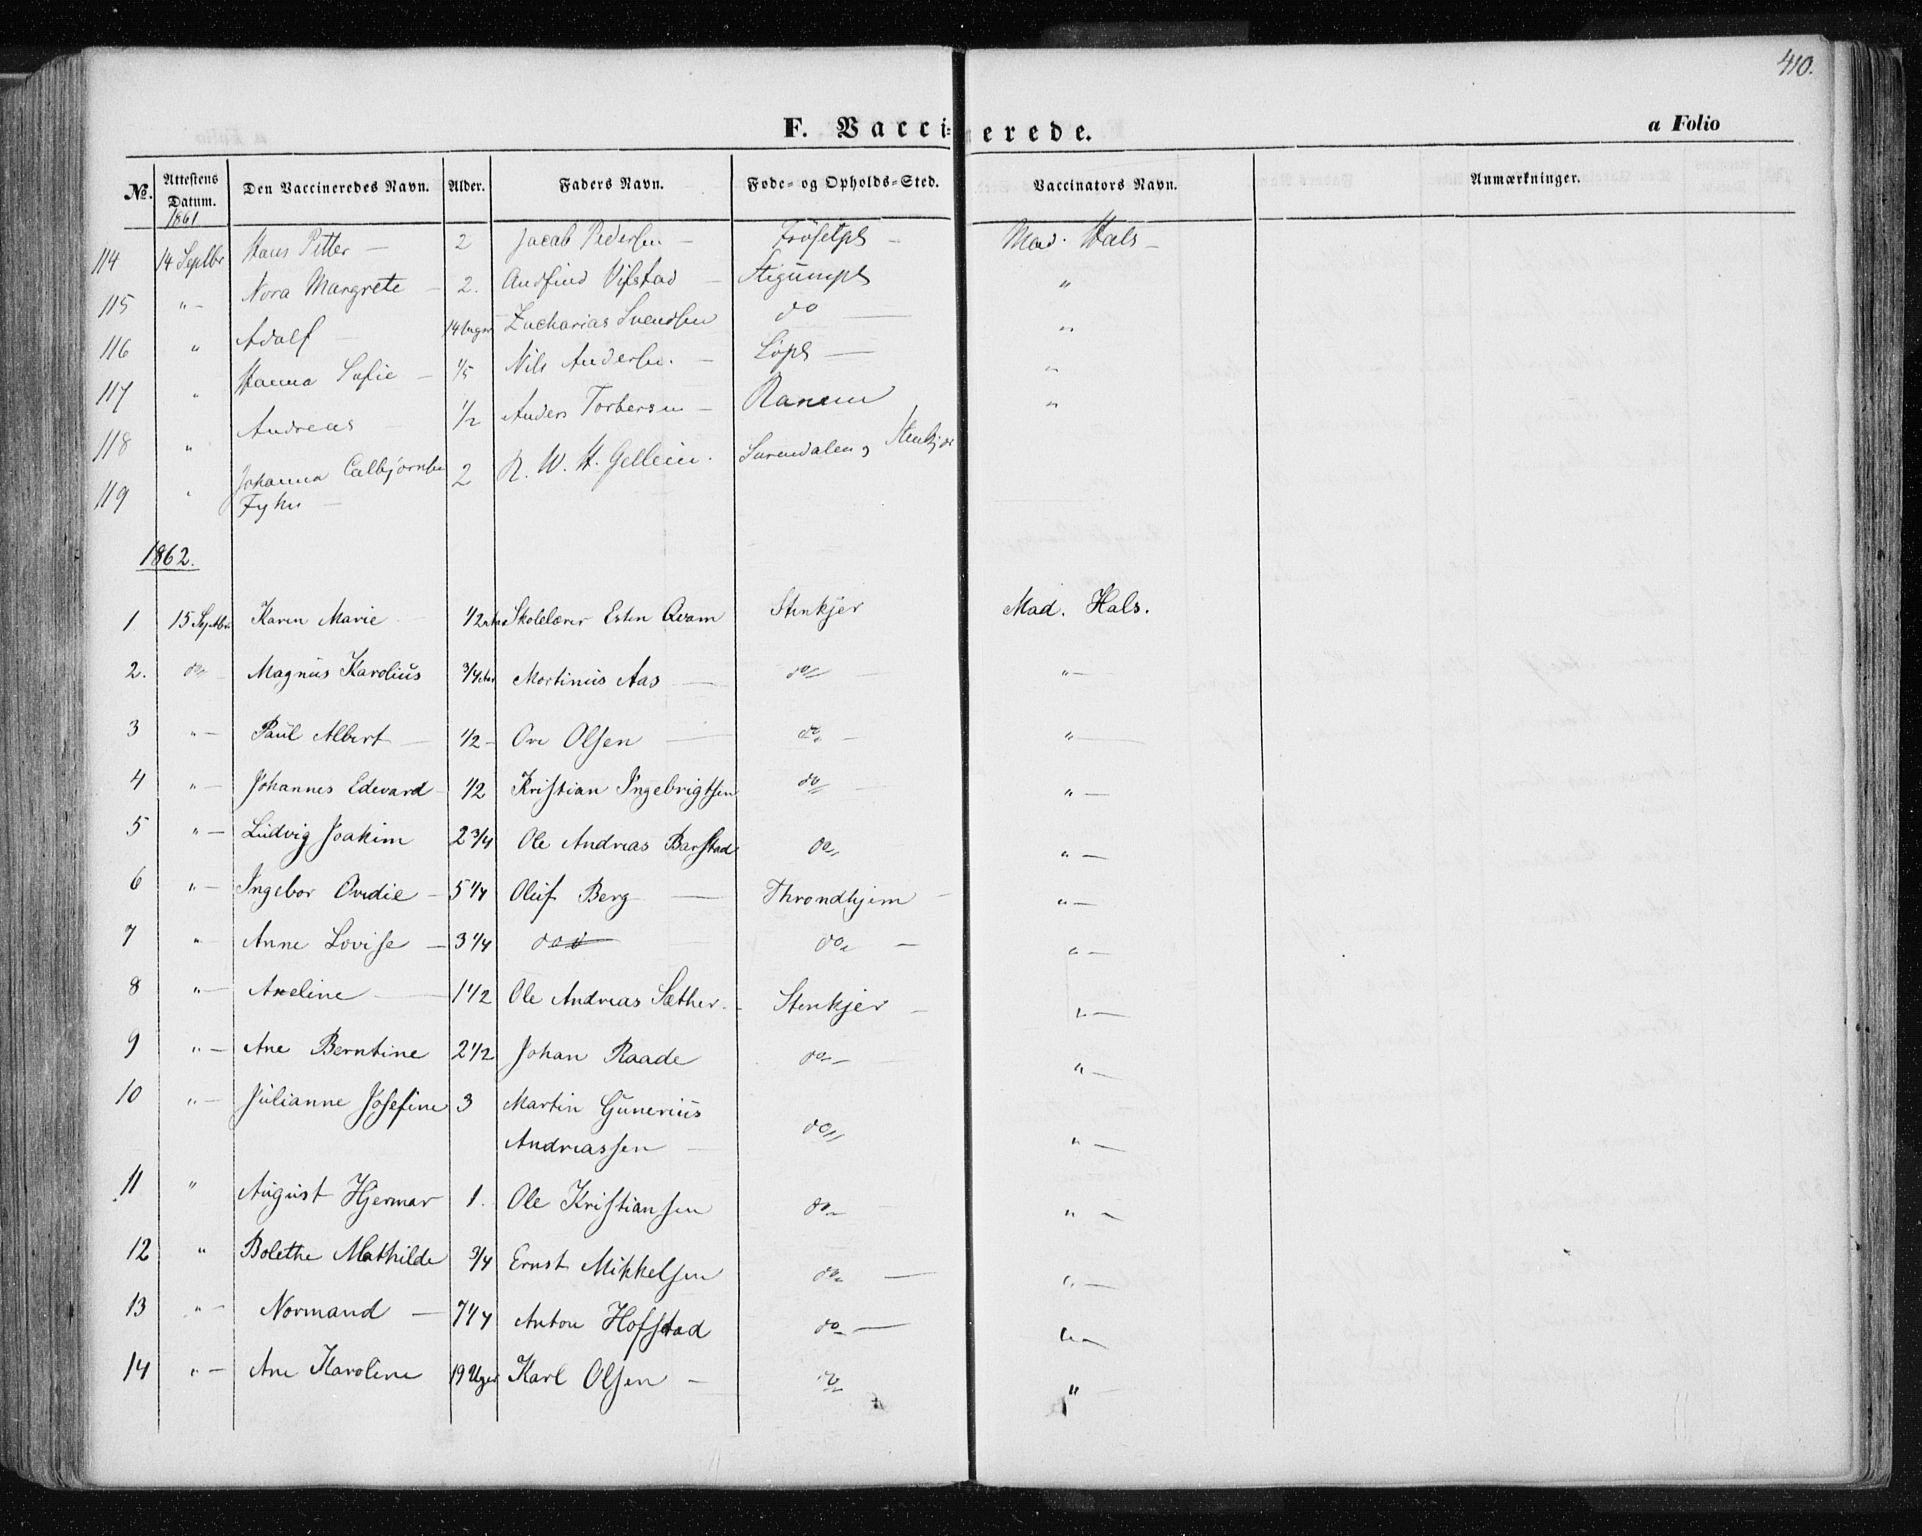 410.
F. Vaccinerede.
a Folio
No. Attestens Datum. Den Vaccineredes Navn. Alder. Faders Navn. Føde- og Opholds-Sted. Vaccinators Navn. Anmærkninger.
1861
114 14 Septbr Hans Petter — 2 Jacob Pedersen — Frøsetpl — Mad. Hals —
115 " — Nora Margrete — 2. Andfind Vifstad — Stigumpl "
116 " Adolf — 14 Uger Zacharias Svendsen do — "
117 " Hanna Sofie — 1/5 Nils Andersen. — Løpl — "
118 " Andreas — 1/2 Anders Torbersen — Ranem "
119 " Johanna Calbjørnsen 2 R. W. H. Gellein. Surendalen, Stenkjær
Fyhn —
1862.
1 15 Septbr Karen Marie 1/2 Skolelærer Esten Qvam Stenkjer Mad. Hals.
2. do Magnus Karolius 3/4 Aar Mortinus Aas — do — " —
3 " — Paul Albert — 1/2 — Ove Olsen — do — " —
4 " — Johannes Edevard 1/2 Kristian Ingebrigtsen do — " —
5 " — Ludvig Joakim 2 3/4 Ole Andreas Barstad do " —
6 " — Ingebor Ovidie — 5 1/4 Oluf Berg — Throndhjem — " —
7 " Anne Lovise — 3 1/4 do do — " —
8 " — Axeline — 1 1/2 Ole Andreas Sæther. Stenkjer — " —
9 " — Ane Berntine 2 1/2 Johan Raade do — " —
10 " — Julianne Josefine 3 Martin Gunerius
Andreassen — do " —
11 " August Hjermar 1. Ole Kristiansen do — " —
12 " Bolethe Mathilde 3/4 Ernst Mikkelsen do — " —
13 " — Normand — 7 1/4 Anton Hofstad do — " —
14 " — Ane Karoline 19 Uger Karl Olsen — do "